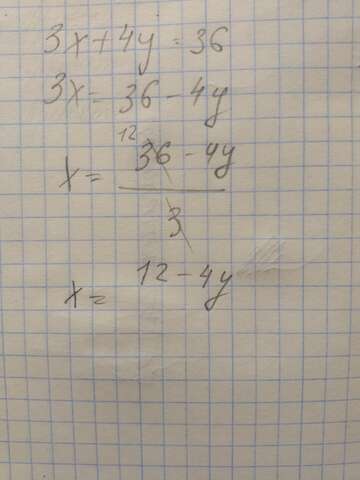 3x+4y=36
3x=36-4y
12
x=36-4y
3
x=12-4y